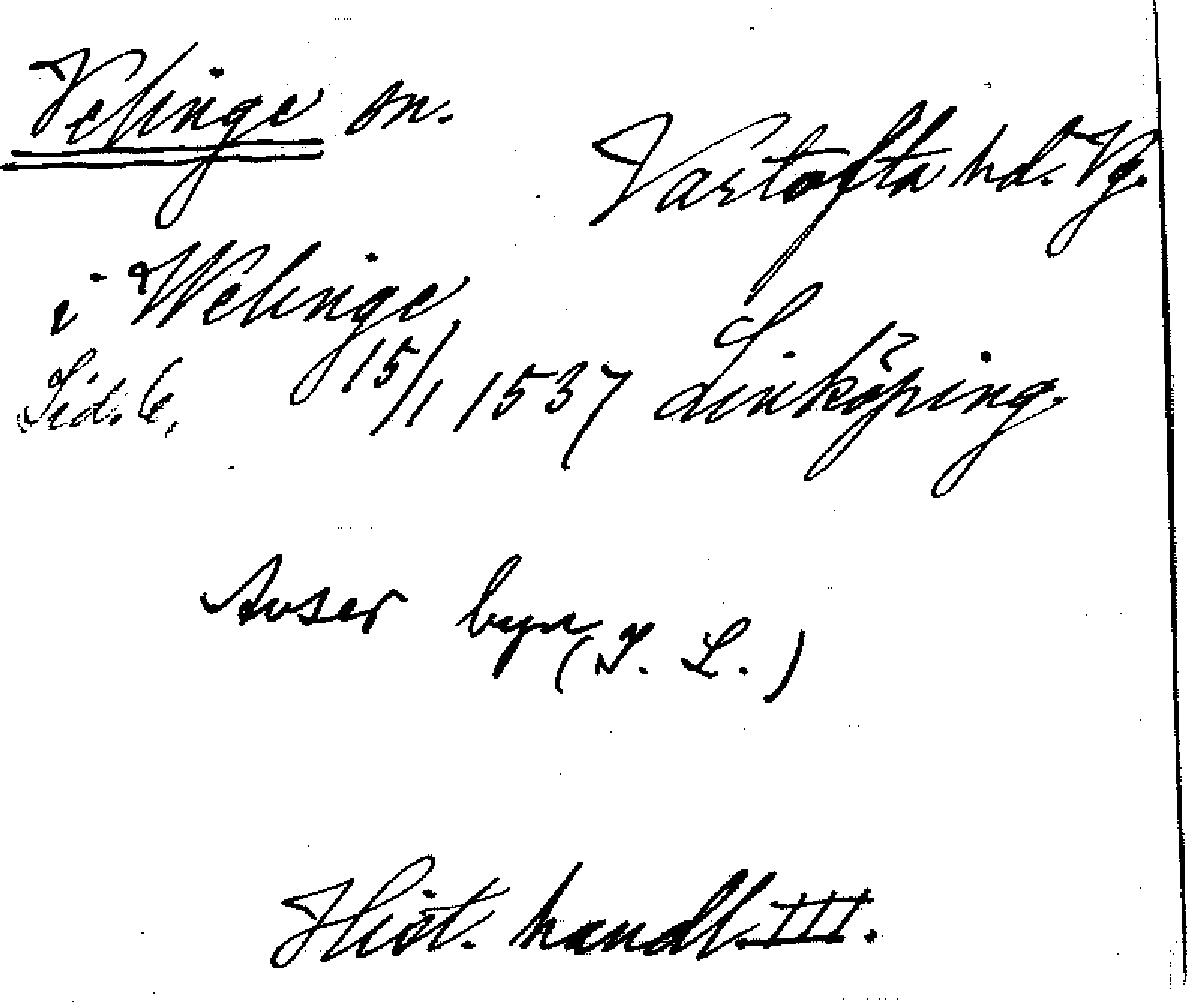 Velinge sn.
Vartofta hd. Vg.
i Welinge
Sid. 6, 15/1 1537 Linköping.
Avser byn (I. L.)
Hist. handl. III.